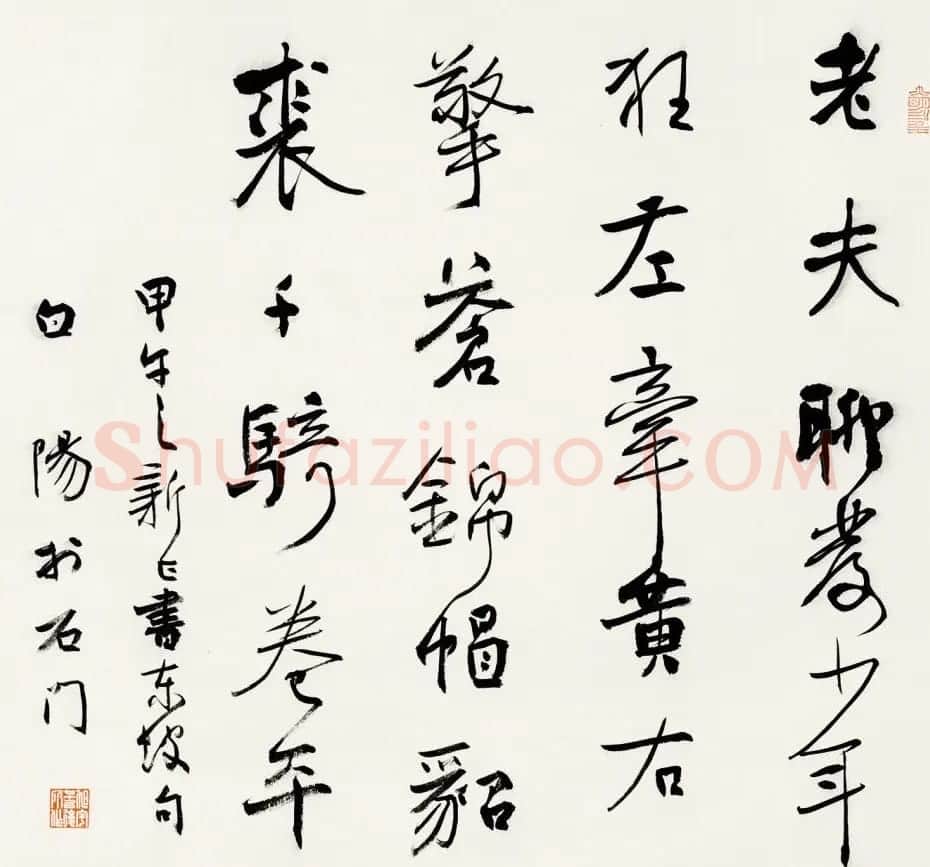 老夫聊發少年
狂左牽黄右
擎蒼錦帽貂
裘千騎卷平
甲午之新正書东坡句
白陽於石门
Shufaziliao.COM